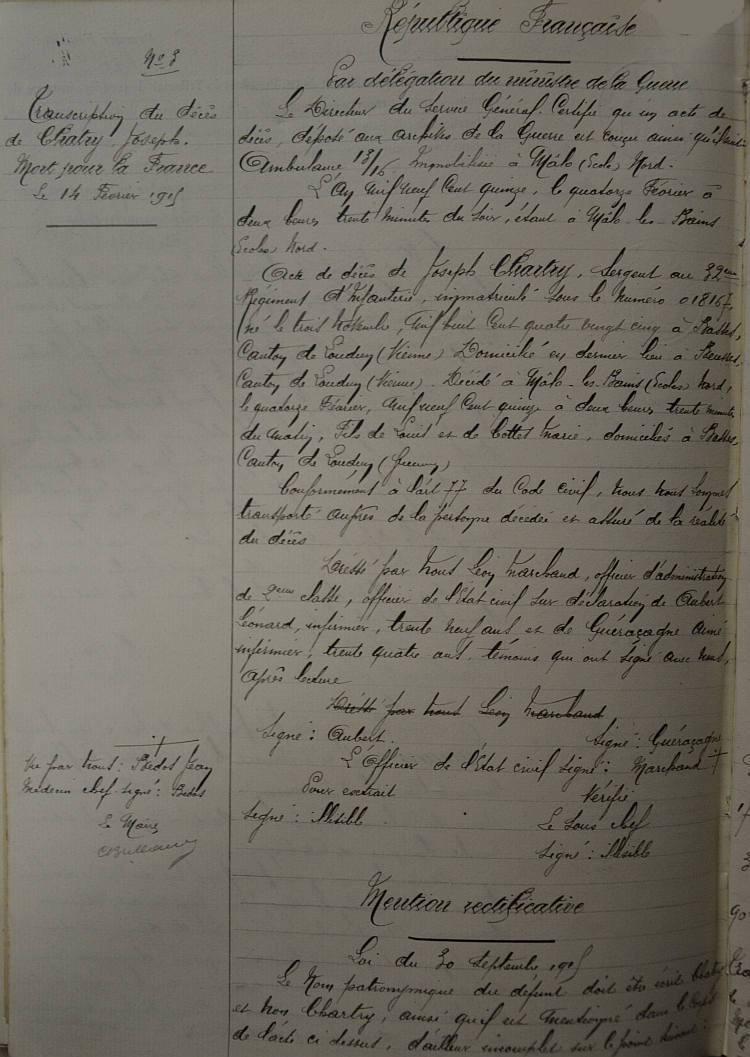 N° 3
Transcription du décès
de Chatry Joseph.
Mort pour la France
Le 14 Février 1915
République Française
Par délégation du ministre de la Guerre
Le Directeur du Service Général. Certifie qu'un acte de
décès, déposé aux archives de la Guerre est conçu ainsi qu'il suit
Ambulance 13/16 Immobilisée à Mâlo (Ecole) Nord.
L'An mil neuf Cent quinze, le quatorze Février à
deux heures trente minutes du soir, étant à Mâlo-les-Bains
Ecoles Nord.
Acte de décès de Joseph Chartry, Sergent au 32eme
Régiment d'Infanterie, immatriculé sous le Numéro 018167,
né le trois Novembre, mil huit Cent quatre vingt cinq à Basses,
Canton de Loudun (Vienne) Domicilié en dernier lieu à
Canton de Loudun (Vienne). Décédé à Mâlo-les-Bains (Ecoles) Nord,
le quatorze Février, mil neuf Cent quinze à deux heures trente minutes
du matin, Fils de Louis et de Cottet Marie, domiciliés à Basses,
Canton de Loudun
Conformément à l'art 77 du Code civil, Nous nous sommes
transporté auprès de la personne décédée et assuré de la réalité
du décès
Dressé par Nous Léon Marchand, officier d'administration
de 2eme classe, officier de l'Etat civil sur déclaration de Aubert
Léonard, infirmier, trente neuf ans et de Guéraçagne Aimé
infirmier, trente quatre ans, témoins qui ont signé avec Nous,
après lecture
Dressé par Nous Léon Marchand
Signé : Aubert. Signé : Guéraçagne
L'Officier de l'Etat civil Signé : Marchand +
Pour extrait Vérifié
Signé : Illisible Le Sous chef
Signé : Illisible
+
Vu par Nous : Bédos Jean
Médecin chef Signé : Bédos
Le Maire
Mention rectificative
Loi du 30 Septembre 1915
Le Nom patronymique du défunt doit être écrit Chatry
et non Chartry, ainsi qu'il est mentionné dans le corps
de l'acte ci dessus, d'ailleurs incomplet sur le point suivant :